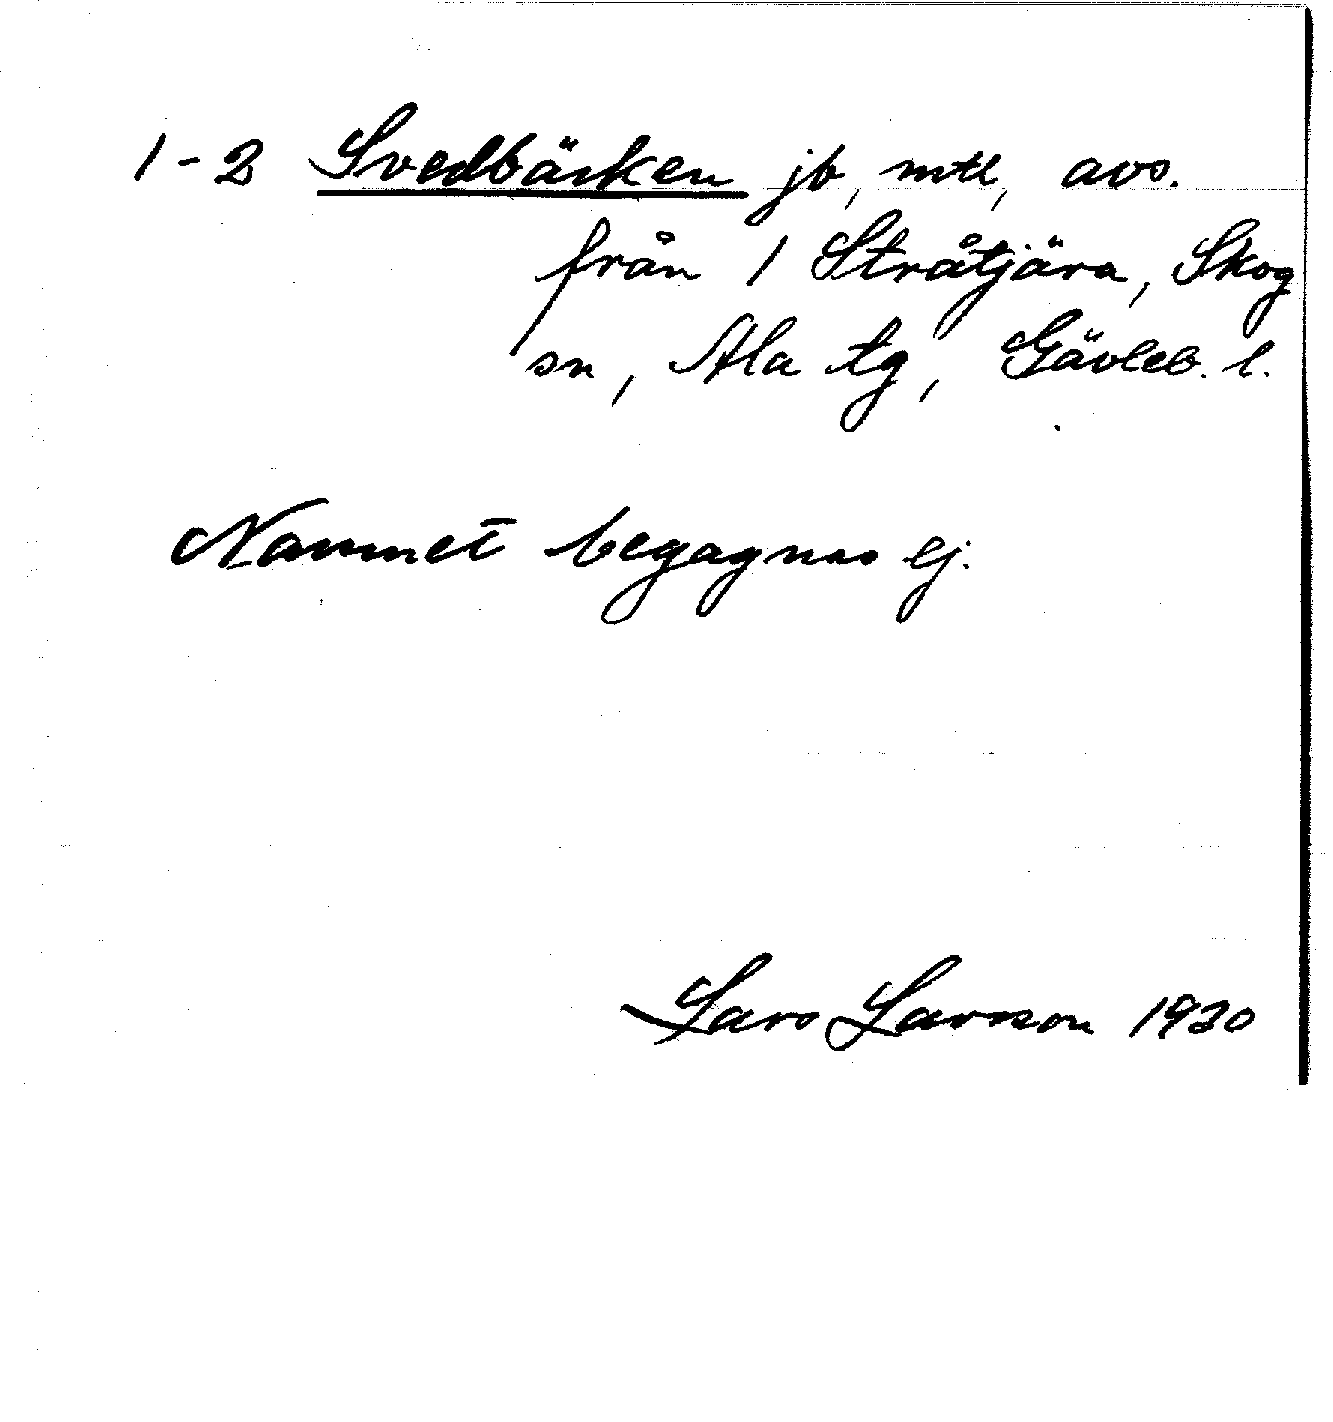 1-2 Svedbäcken jb, mtl, avs.
från 1 Stråtjära, Skog
sn, Ala tg, Gävleb. l.
Namnet begagnas ej.
Lars Larsson 1930